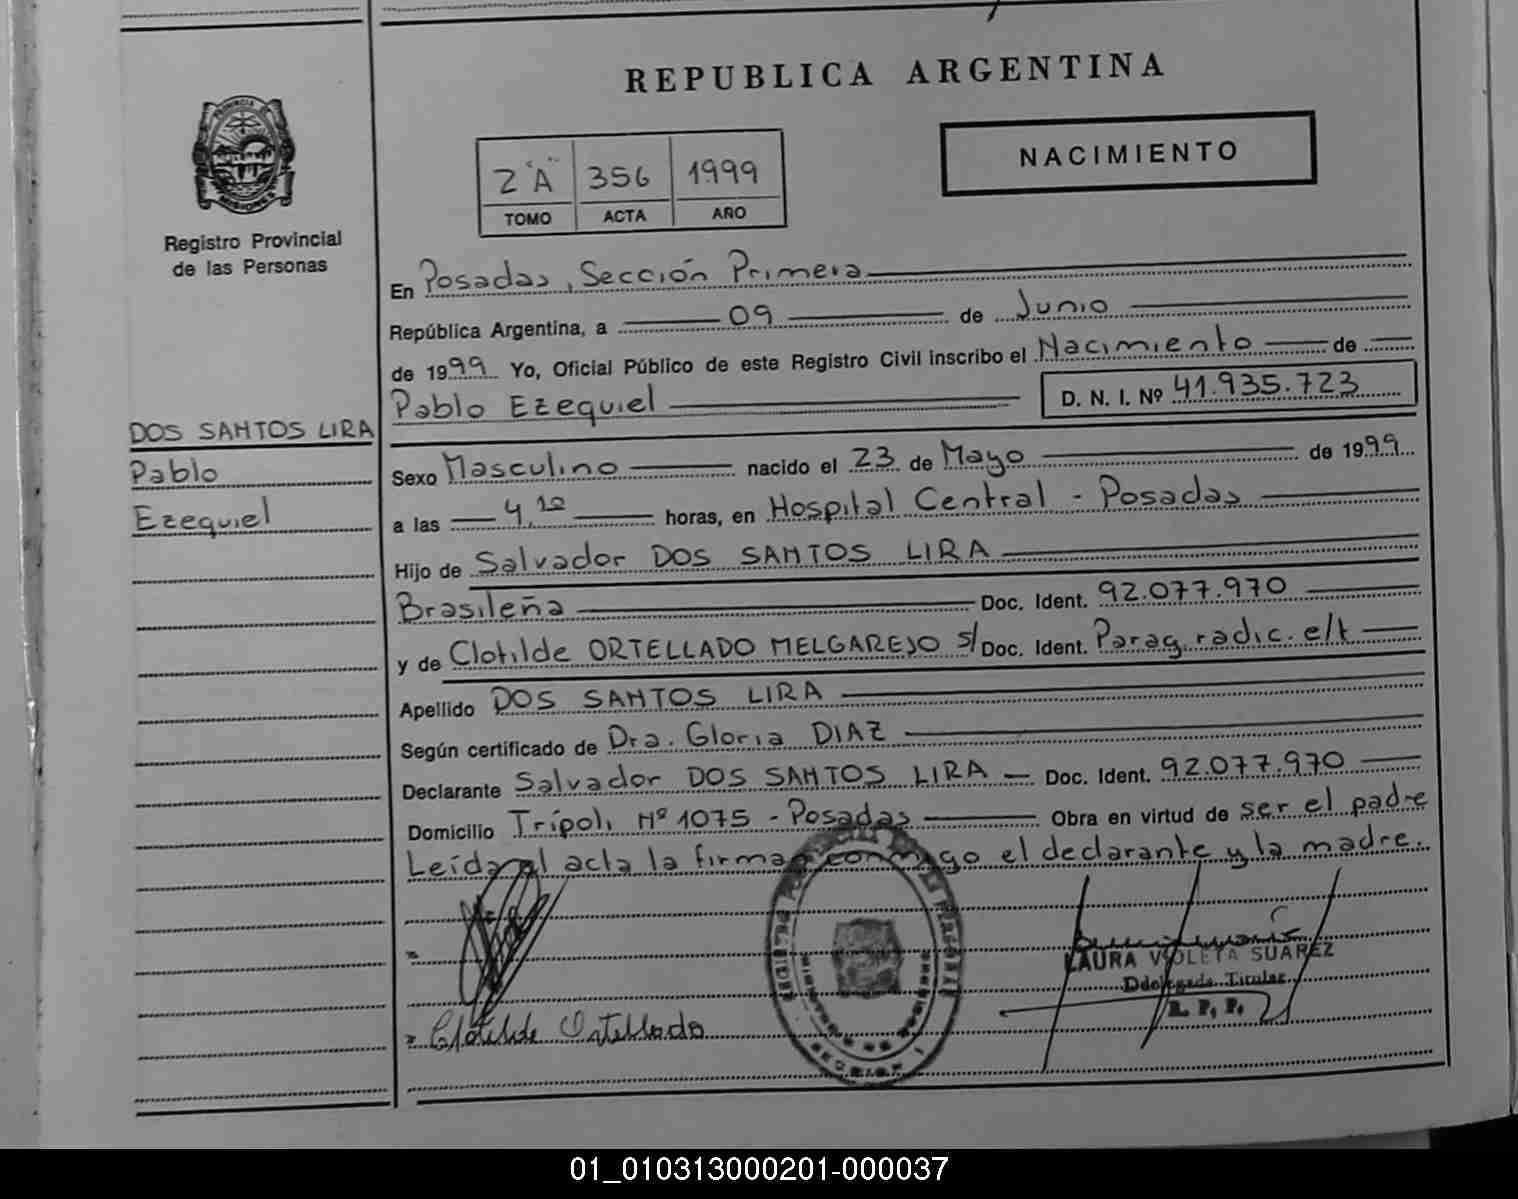 REPUBLICA ARGENTINA
PROVINCIA DE
MISIONES
Registro Provincial
de las Personas
2 "A" 356 1999
TOMO ACTA AÑO
NACIMIENTO
En Posadas, Sección Primera
República Argentina, a 09 de Junio
de 1999 Yo, Oficial Público de este Registro Civil inscribo el Nacimiento de
Pablo Ezequiel D. N. I. Nº 41.935.723
DOS SANTOS LIRA
Pablo
Ezequiel
Sexo Masculino nacido el 23 de Mayo de 1999
a las 4,10 horas, en Hospital Central - Posadas
Hijo de Salvador DOS SANTOS LIRA
Brasileña Doc. Ident. 92.077.970
y de Clotilde ORTELLADO MELGAREJO s/ Doc. Ident. Parag. radic. e/t
Apellido DOS SANTOS LIRA
Según certificado de Dra. Gloria DIAZ
Declarante Salvador DOS SANTOS LIRA Doc. Ident. 92.077.970
Domicilio Trípoli Nº 1075 - Posadas Obra en virtud de ser el padre
Leída el acta la firman conmigo el declarante y la madre.
LAURA VIOLETA SUAREZ
Titular
R. P. P.
Clotilde Ortellado
01_010313000201-000037